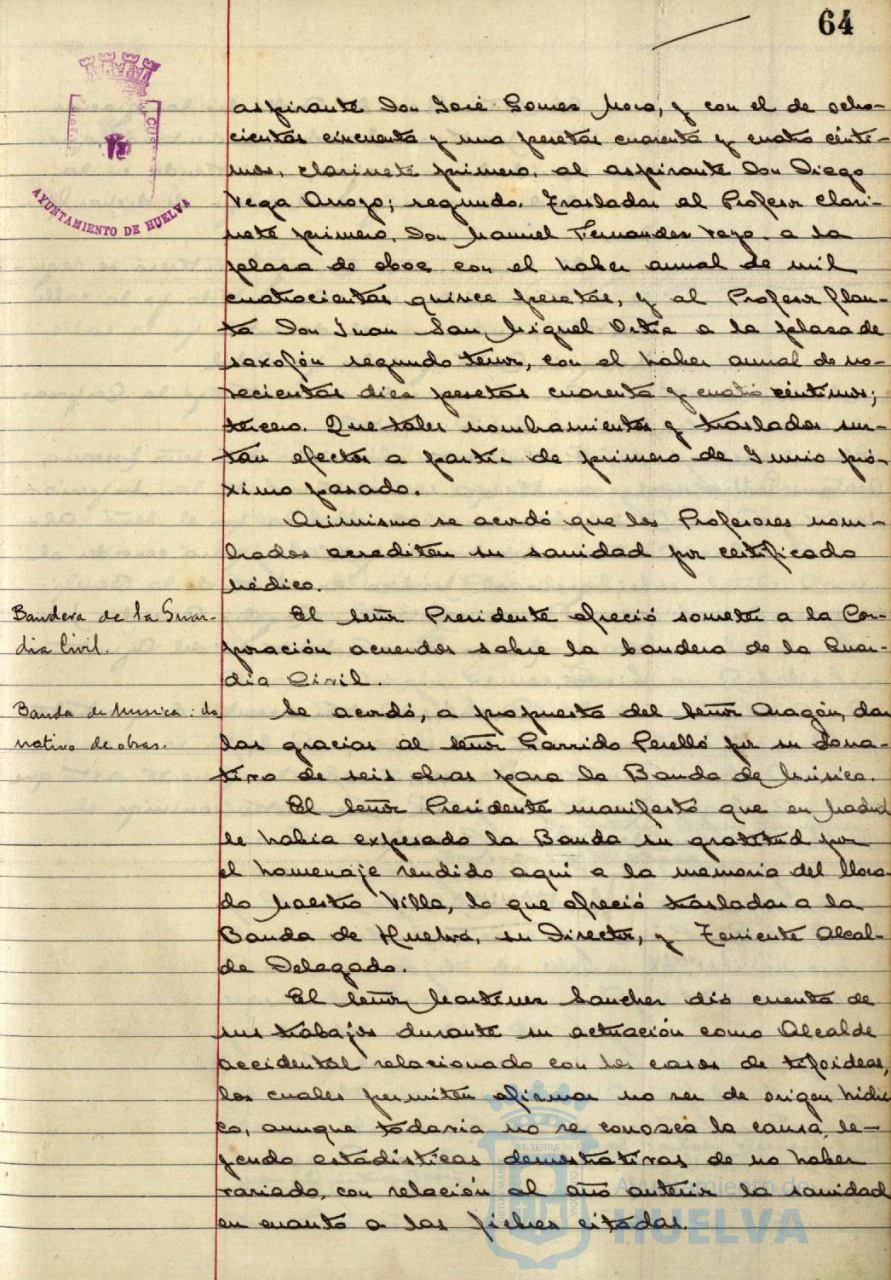 64
AYUNTAMIENTO DE HUELVA
aspirante Don José Gomez Moro, y con el de ocho-
cientas cincuenta y una pesetas cuarenta y cuatro cénti-
mos, clarinete primero, al aspirante Don Diego
Vega Arroyo; segundo. Trasladar al Profesor clari-
nete primero, Don Manuel Fernandez a la
plaza de oboe, con el haber anual de mil
cuatrocientas quince pesetas, y al Profesor flau-
ta Don Juan San Miguel Ortiz a la plaza de
saxofón segundo tenor, con el haber anual de no-
vecientas diez pesetas cuarenta y cuatro céntimos;
tercero. Que tales nombramientos y traslados sur-
tan efectos a partir de primero de Junio pró-
ximo pasado.
Asimismo se acordó que los Profesores nom-
brados acrediten su sanidad por certificado
médico.
Bandera de la Guar-
dia Civil.
El Señor Presidente ofreció someter a la Cor-
poración acuerdos sobre la bandera de la Guar-
dia Civil.
Banda de Musica: do
nativo de obras.
Se acordó, a propuesta del Señor Aragón, dar
las gracias al Señor Garrido Perelló por su dona-
tivo de seis obras para la Banda de Música.
El Señor Presidente manifestó que en Madrid
le había expesado la Banda su gratitud por
el homenaje rendido aquí a la memoria del llora-
do Maestro Villa, lo que ofreció trasladar a la
Banda de Huelva, su Director, y Teniente Alcal-
de Delegado.
El Señor Martinez Sanchez dió cuenta de
sus trabajos durante su actuación como Alcalde
accidental relacionado con los casos de tifoideas,
los cuales permiten afirmar no ser de origen hídri
co, aunque todavia no se conozca la causa, le-
yendo estadísticas demostrativas de no haber
variado, con relación al año anterior la sanidad
en cuanto a las fiebres citadas.
Ayuntamiento de
HUELVA